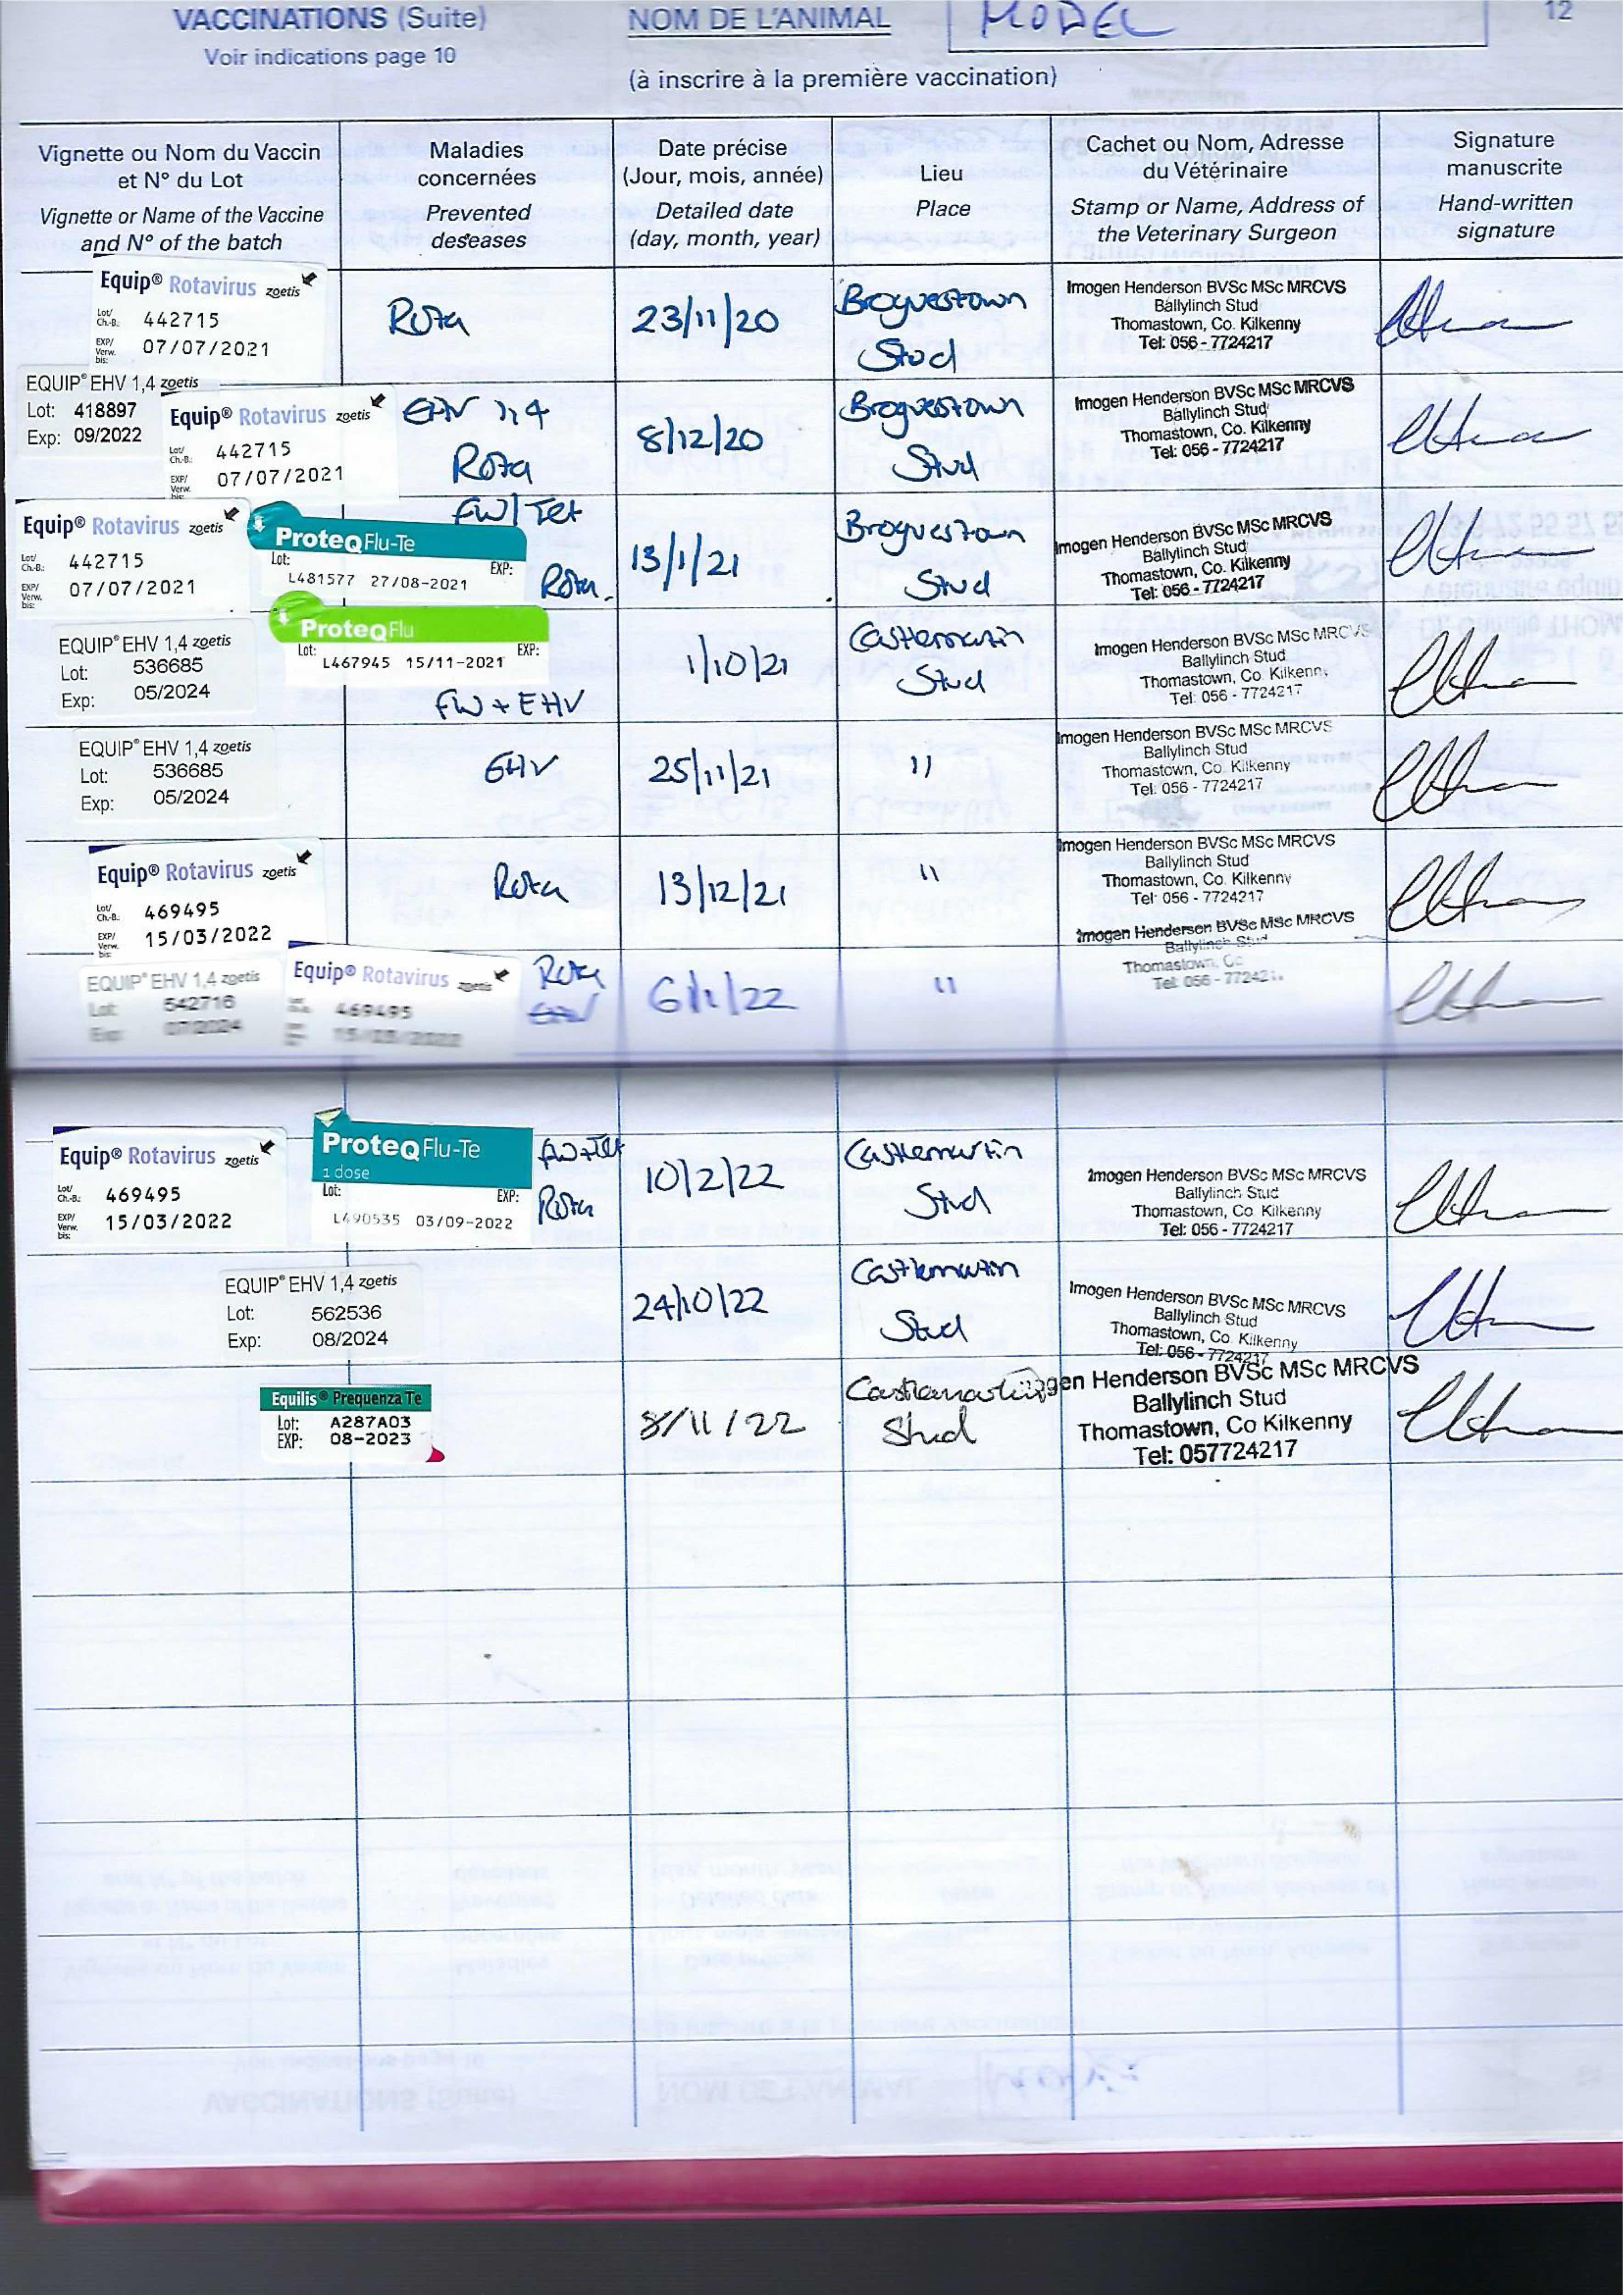 VACCINATIONS (Suite)
Voir indications page 10
NOM DE L'ANIMAL
MODEL
12
(à inscrire à la première vaccination)
Vignette ou Nom du Vaccin
et N° du Lot
Vignette or Name of the Vaccine
and N° of the batch
Maladies
concernées
Prevented
deseases
Date précise
(Jour, mois, année)
Detailed date
(day, month, year)
Lieu
Place
Cachet ou Nom, Adresse
du Vétérinaire
Stamp or Name, Address of
the Veterinary Surgeon
Signature
manuscrite
Hand-written
signature
Equip® Rotavirus zoetis
Lot/ Ch.-B.: 442715
EXP/ Verw. bis: 07/07/2021
Rota
23/11/20
Broguestown
Stud
Imogen Henderson BVSc MSc MRCVS
Ballylinch Stud
Thomastown, Co. Kilkenny
Tel: 056 - 7724217
EQUIP® EHV 1,4 zoetis
Lot: 418897
Exp: 09/2022
Equip® Rotavirus zoetis
Lot/ Ch.-B.: 442715
EXP/ Verw. bis: 07/07/2021
EHV 1,4
Rota
8/12/20
Broguestown
Stud
Imogen Henderson BVSc MSc MRCVS
Ballylinch Stud
Thomastown, Co. Kilkenny
Tel: 056 - 7724217
Equip® Rotavirus zoetis
Lot/ Ch.-B.: 442715
EXP/ Verw. bis: 07/07/2021
ProteqFlu-Te
Lot: EXP:
L481577 27/08-2021
Flu/Tet
Rota.
13/1/21
Broguestown
Stud
Imogen Henderson BVSc MSc MRCVS
Ballylinch Stud
Thomastown, Co. Kilkenny
Tel: 056 - 7724217
EQUIP® EHV 1,4 zoetis
Lot: 536685
Exp: 05/2024
ProteqFlu
Lot: EXP:
L467945 15/11-2021
Flu + EHV
1/10/21
Castlemartin
Stud
Imogen Henderson BVSc MSc MRCVS
Ballylinch Stud
Thomastown, Co. Kilkenny
Tel: 056 - 7724217
EQUIP® EHV 1,4 zoetis
Lot: 536685
Exp: 05/2024
EHV
25/11/21
11
Imogen Henderson BVSc MSc MRCVS
Ballylinch Stud
Thomastown, Co. Kilkenny
Tel: 056 - 7724217
Equip® Rotavirus zoetis
Lot/ Ch.-B.: 469495
EXP/ Verw. bis: 15/03/2022
Rota
13/12/21
11
Imogen Henderson BVSc MSc MRCVS
Ballylinch Stud
Thomastown, Co. Kilkenny
Tel: 056 - 7724217
EQUIP® EHV 1,4 zoetis
Lot: 542716
Exp: 07/2024
Equip® Rotavirus zoetis
469495
15/03/2022
Rota
EHV
6/1/22
11
Imogen Henderson BVSc MSc MRCVS
Ballylinch Stud
Thomastown, Co
Tel: 056 - 77242
Equip® Rotavirus zoetis
Lot/ Ch.-B.: 469495
EXP/ Verw. bis: 15/03/2022
ProteqFlu-Te
1 dose
Lot: EXP:
L490535 03/09-2022
Flu+Tet
Rota
10/2/22
Castlemartin
Stud
Imogen Henderson BVSc MSc MRCVS
Ballylinch Stud
Thomastown, Co. Kilkenny
Tel: 056 - 7724217
EQUIP® EHV 1,4 zoetis
Lot: 562536
Exp: 08/2024
24/10/22
Castlemartin
Stud
Imogen Henderson BVSc MSc MRCVS
Ballylinch Stud
Thomastown, Co. Kilkenny
Tel: 056 - 7724217
Equilis® Prequenza Te
Lot: A287A03
EXP: 08-2023
8/11/22
Castlemartin
Stud
Imogen Henderson BVSc MSc MRCVS
Ballylinch Stud
Thomastown, Co Kilkenny
Tel: 057724217